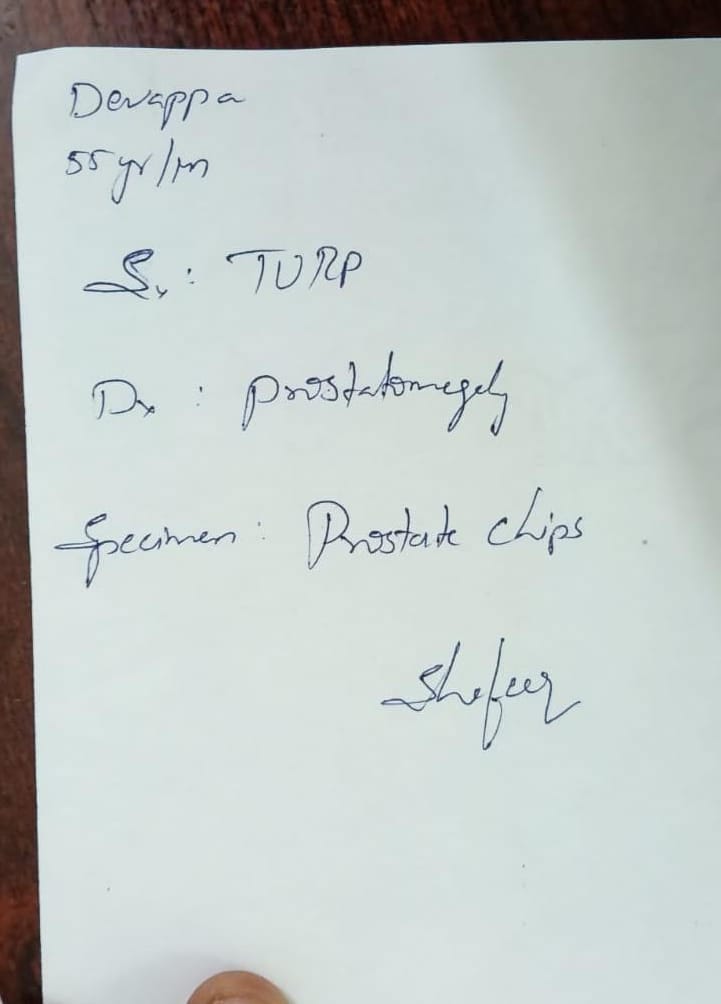 Devappa
55 yr/m
Sx : TURP
Dx : prostatomegely
Specimen : Prostate chips
Shefeeq